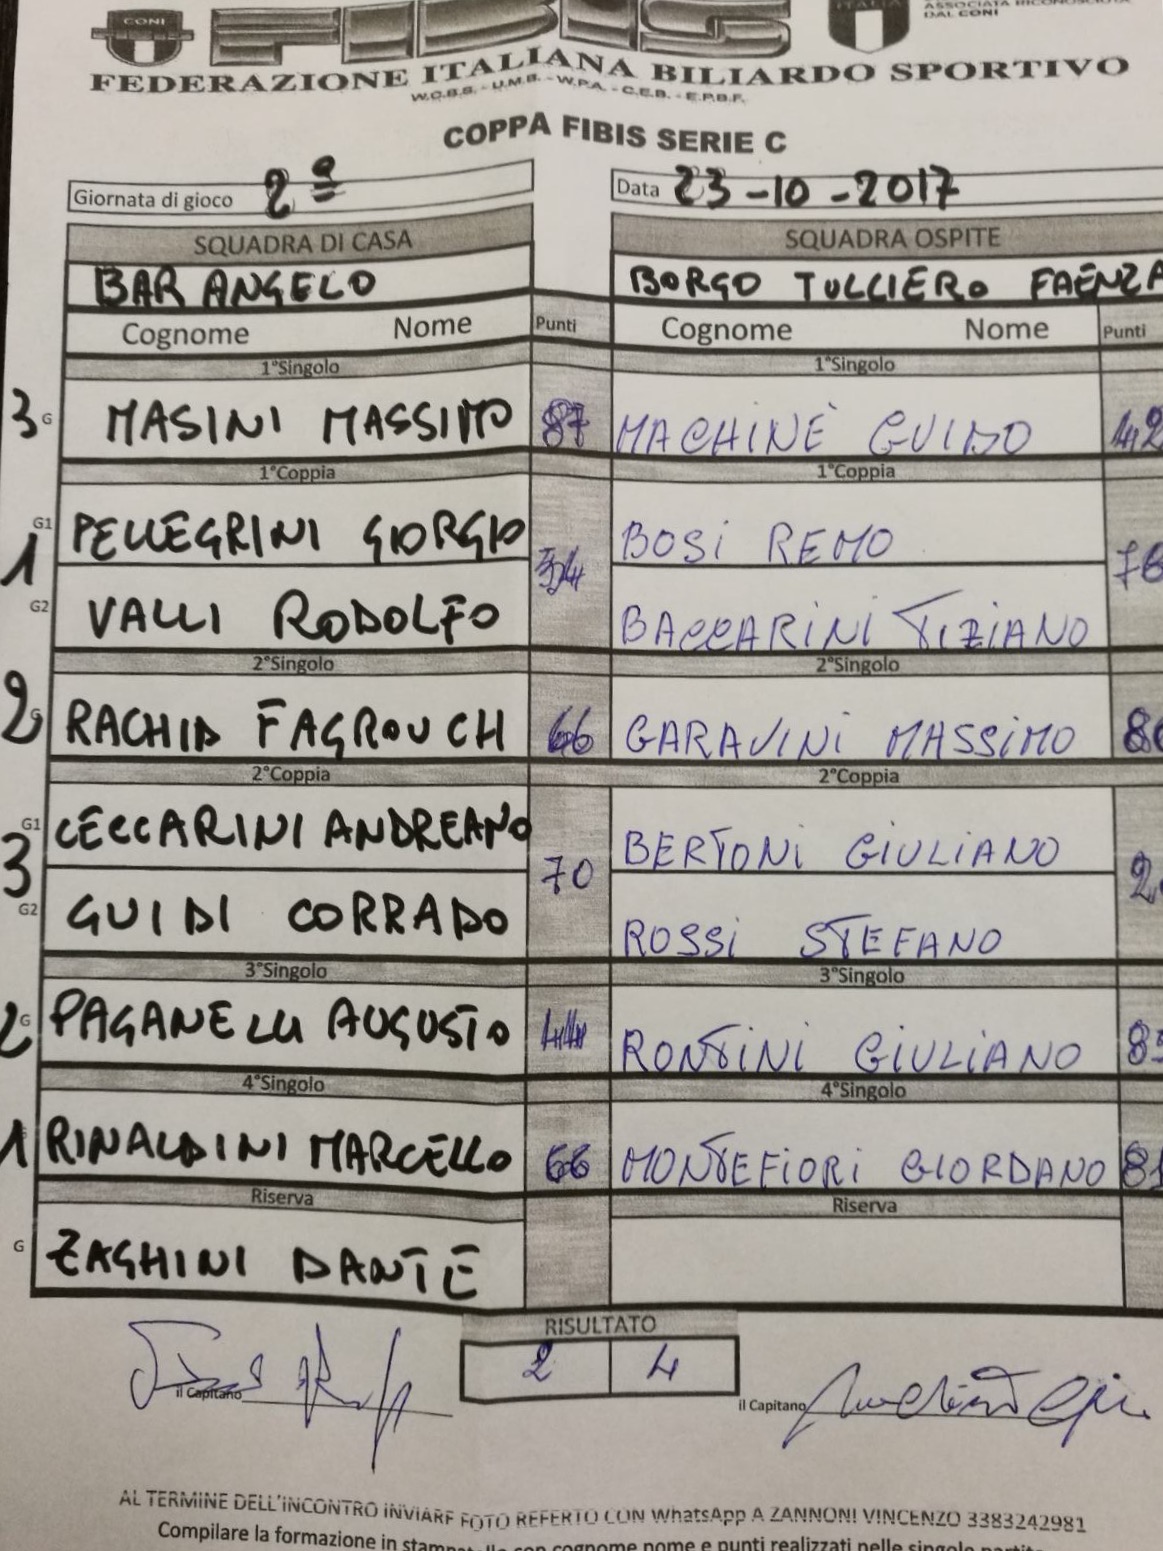 CONI FIBIS ITALIA
DAL CONI
FEDERAZIONE ITALIANA BILIARDO SPORTIVO
W.C.B.S. - U.M.B. - W.P.A. - C.E.B. - E.P.B.F.
COPPA FIBIS SERIE C
Giornata di gioco 2ª Data 23-10-2017
SQUADRA DI CASA SQUADRA OSPITE
BAR ANGELO BORGO TULLIERO FAENZA
Cognome Nome Punti Cognome Nome Punti
1°Singolo 1°Singolo
3 G MASINI MASSIMO 87 MACHINÈ GUIDO 42
1°Coppia 1°Coppia
G1 PELLEGRINI GIORGIO BOSI REMO
1 34 76
G2 VALLI RODOLFO BACCARINI TIZIANO
2°Singolo 2°Singolo
2 G RACHID FAGROUCH 66 GARAVINI MASSIMO
2°Coppia 2°Coppia
G1 CECCARINI ANDREANO BERTONI GIULIANO
3 70
G2 GUIDI CORRADO ROSSI STEFANO
3°Singolo 3°Singolo
2 G PAGANELLI AUGUSTO 44 RONTINI GIULIANO
4°Singolo 4°Singolo
1 RINALDINI MARCELLO 66 MONTEFIORI GIORDANO 81
Riserva Riserva
G ZAGHINI DANTE
RISULTATO
2 4
il Capitano il Capitano
AL TERMINE DELL'INCONTRO INVIARE FOTO REFERTO CON WhatsApp A ZANNONI VINCENZO 3383242981
Compilare la formazione in stampatello con cognome nome e punti realizzati nelle singole partite